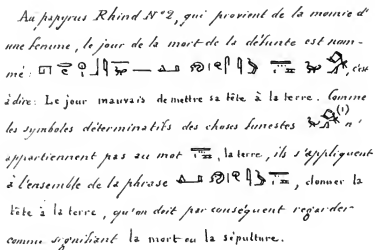 Au papyrus Rhind Nº 2, qui provient de la momie d'
une femme, le jour de la mort de la défunte est nom-
mé: , c'est
à dire: Le jour mauvais de mettre sa tête à la terre. Comme
les symboles déterminatifs des choses funestes (1) n'
appartiennent pas au mot , la terre, ils s'appliquent
à l'ensemble de la phrase , donner la
tête à la terre, qu'on doit par conséquent regarder
comme signifiant la mort ou la sépulture.